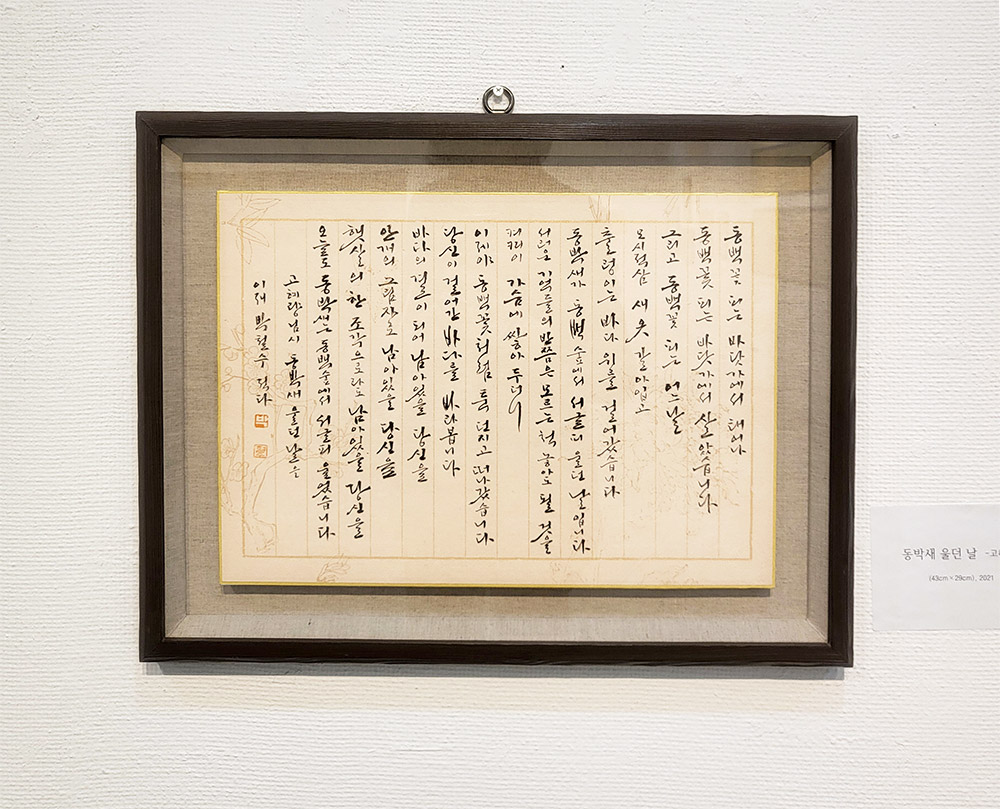 동백꽃 피는 바닷가에서 태어나
동백꽃 피는 바닷가에서 살았습니다
그리고 동백꽃 피는 어느날
모시적삼 새 옷 갈아입고
출렁이는 바다 위를 걸어갔습니다
동박새가 동백숲에서 서글피 울던 날입니다
서러운 기억들의 반쯤은 모르는 척 놓아도 될 것을
켜켜이 가슴에 쌓아 두더니
이제야 동백꽃처럼 툭 던지고 떠나갔습니다
당신이 걸어간 바다를 바라봅니다
바다의 결이 되어 남아있을 당신을
안개의 그림자로 남아있을 당신을
햇살의 한 조각으로라도 남아있을 당신을
오늘도 동박새는 동백숲에서 서글피 울었습니다
고혜량님시 동박새 울던 날을
이재 박철수 적다
박
동박새 울던 날 -고
(43cm×29cm), 2021